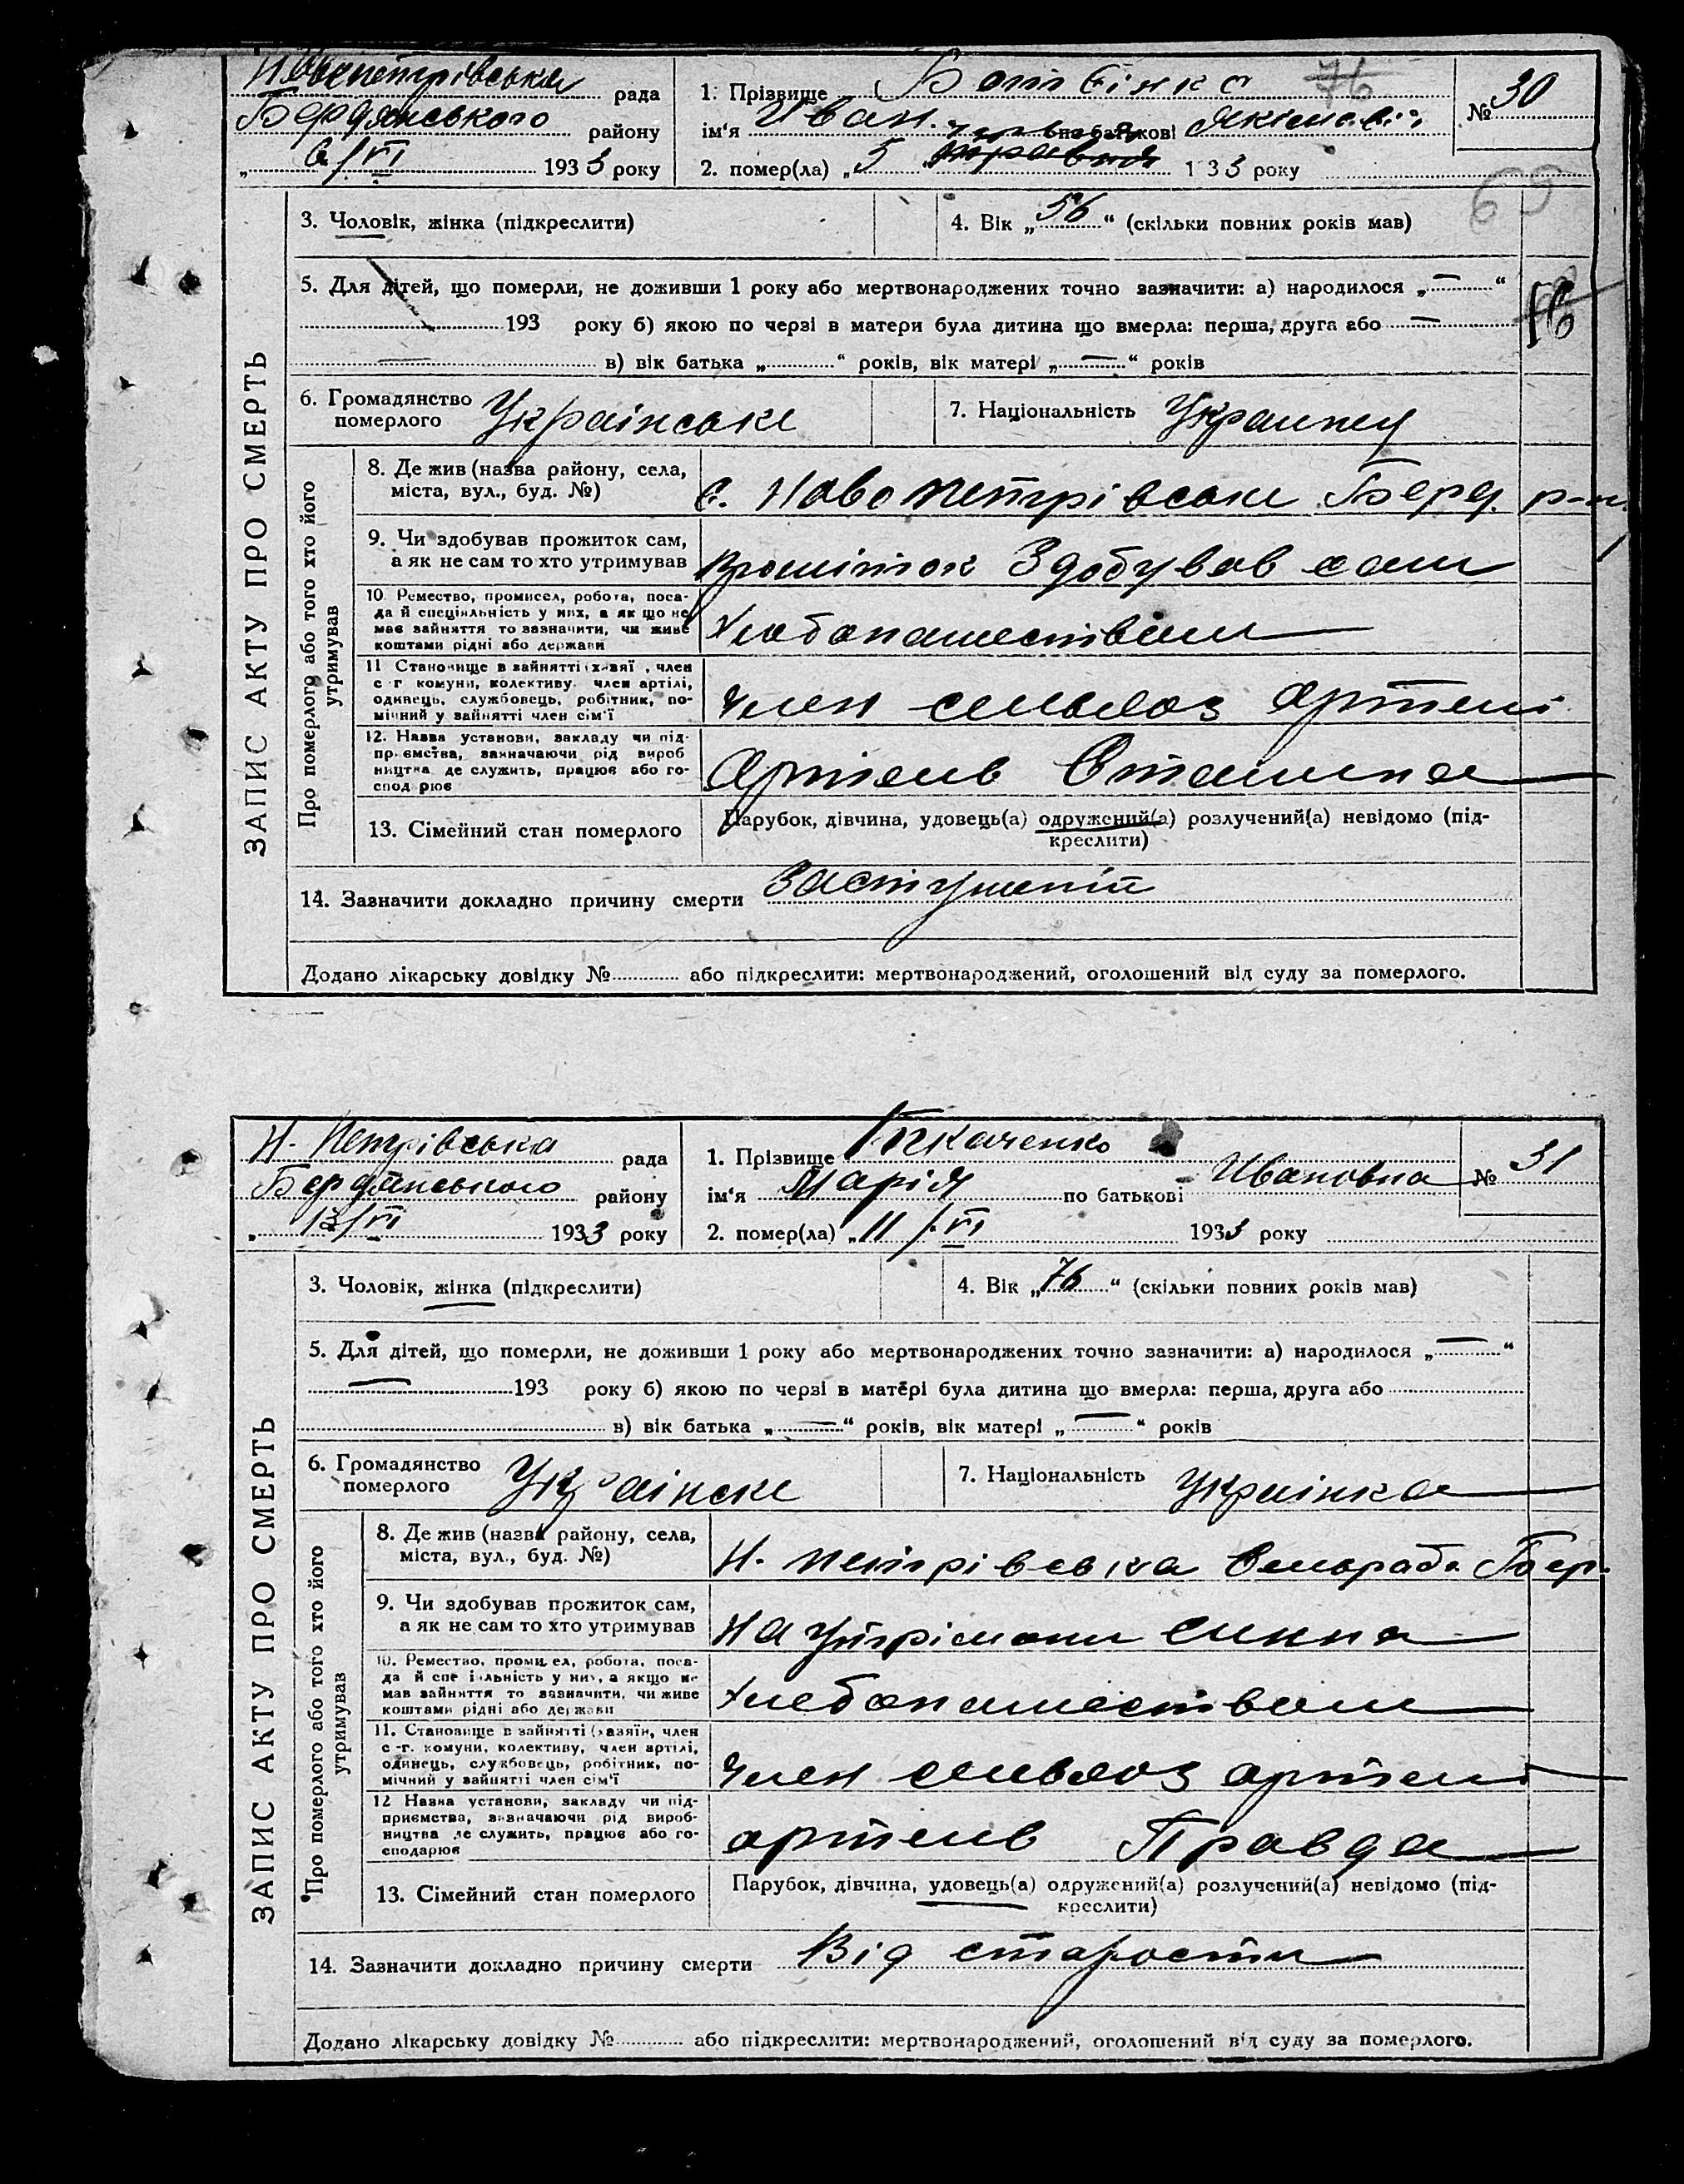 Новопетрівська рада
Бердянського району
„ 6/VI 1933 року
1. Прізвище
76
ім'я Иван по батькові
2. помер(ла) „ 5 червня травня 1 33 року
№ 30
69
ЗАПИС АКТУ ПРО СМЕРТЬ
3. Чоловік, жінка (підкреслити)
4. Вік „ 56 “ (скільки повних років мав)
5. Для дітей, що померли, не доживши 1 року або мертвонароджених точно зазначити: а) народилося „ — “
193 року б) якою по черзі в матери була дитина що вмерла: перша, друга або —
в) вік батька „ “ років, вік матері „ — “ років
6. Громадянство
померлого
Українське
7. Національність Украинец
Про померлого або того хто його
утримував
8. Де жив (назва району, села,
міста, вул., буд. №)
с. Новопетрівське Берд. р-н.
9. Чи здобував прожиток сам,
а як не сам то хто утримував
Здобував сам
10. Ремество, промисел, робота, поса-
да й спеціяльність у них, а як що не
має зайняття то зазначити, чи живе
коштами рідні або держави
Хлебопашеством
11 Становище в зайнятті (хазяї , член
с-г комуни, колективу. член артілі,
одинець, службовець, робітник, по-
мічний у зайнятті член сім'ї
Член сельхоз Артелі
12. Назва установи, закладу чи під-
приємства, зазначаючи рід вироб
ництва де служить, працює або го-
сподарює
Артель Сталина
13. Сімейний стан померлого
Парубок, дівчина, удовець(а) одружений(а) розлучений(а) невідомо (під-
креслити)
14. Зазначити докладно причину смерти
Додано лікарську довідку № або підкреслити: мертвонароджений, оголошений від суду за померлого.
Н. Петрівська рада
Бердянського району
„ 13/VI 1933 року
1. Прізвище Ткаченко
ім'я Марія по батькові Ивановна
2. помер(ла) „ 11/VI 1933 року
№ 31
ЗАПИС АКТУ ПРО СМЕРТЬ
3. Чоловік, жінка (підкреслити)
4. Вік „ 76 “ (скільки повних років мав)
5. Для дітей, що померли, не доживши 1 року або мертвонароджених точно зазначити: а) народилося „ — “
— 193 року б) якою по черзі в матері була дитина що вмерла: перша, друга або
в) вік батька „ — “ років, вік матері „ — “ років
6. Громадянство
померлого
Українске
7. Національність Українка
Про померлого або того хто його
утримував
8. Де жив (назва району, села,
міста, вул., буд. №)
Н. Петрівська Сельрада Бер.
9. Чи здобував прожиток сам,
а як не сам то хто утримував
На утрімани синна
10. Ремество, промисел, робота, поса-
да й спеціяльність у них, а якщо не
мав зайняття то зазначити, чи живе
коштами рідні або держави
Хлебопашеством
11. Становище в зайнятті (хазяїн, член
с-г. комуни, колективу, член артілі,
одинець, службовець, робітник, по-
мічний у зайнятті член сім'ї
Член сельхоз артелі
12 Назва установи, закладу чи під-
приємства, зазначаючи рід вироб-
ництва де служить, працює або го-
сподарює
артель Правда
13. Сімейний стан померлого
Парубок, дівчина, удовець(а) одружений(а) розлучений(а) невідомо (під-
креслити)
14. Зазначити докладно причину смерти Від старости
Додано лікарську довідку № або підкреслити: мертвонароджений, оголошений від суду за померлого.